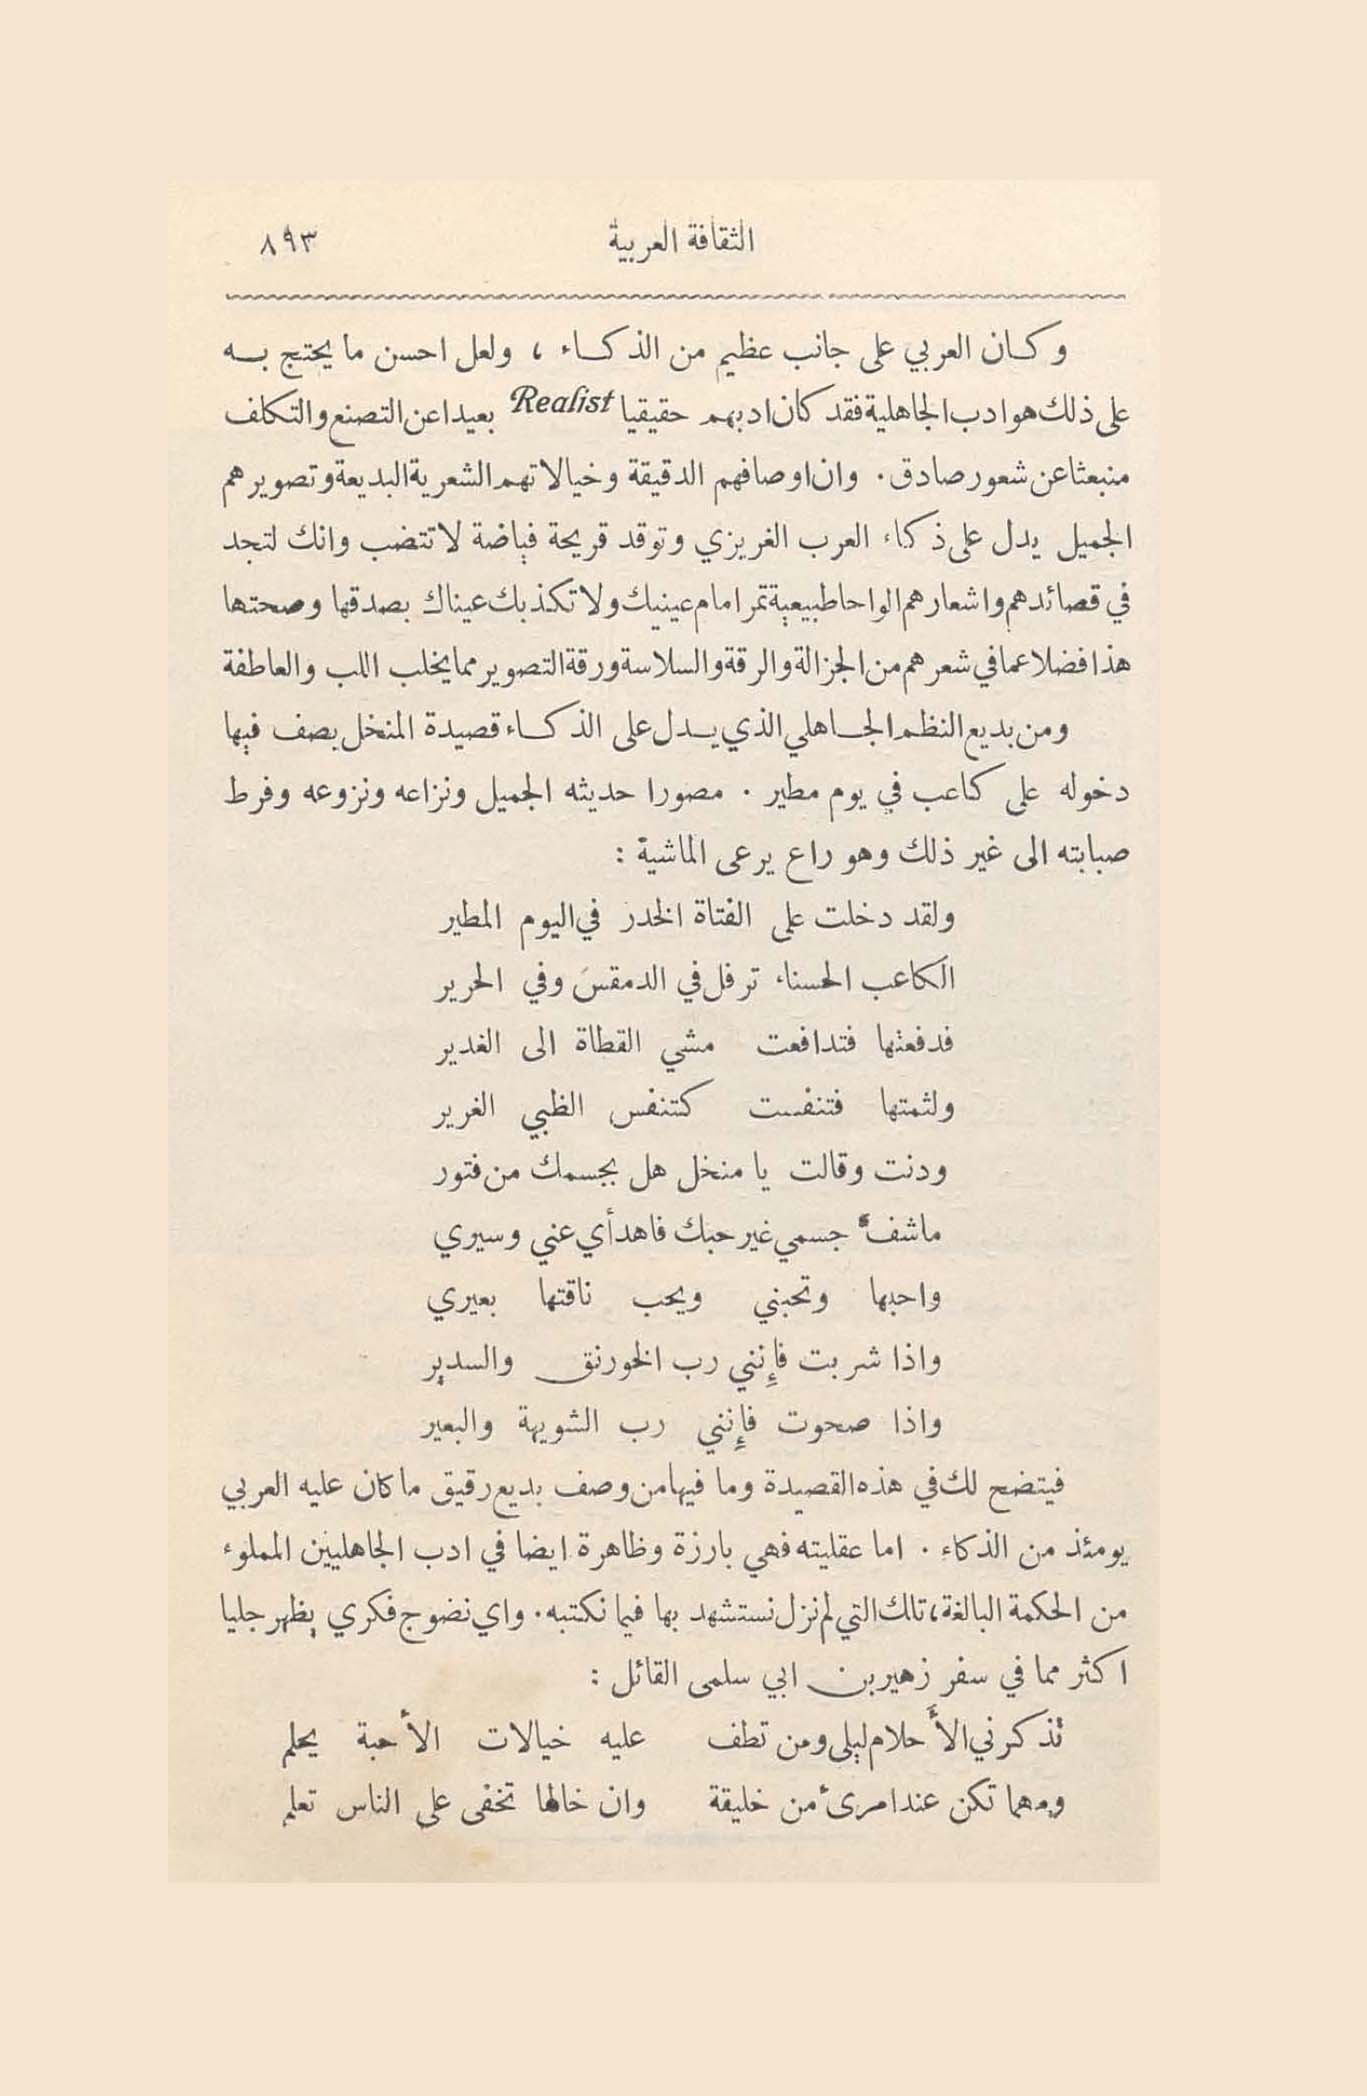 الثقافة العربية ٨٩٣
وكان العربي على جانب عظيم من الذكاء ، ولعل احسن ما يحتج به
على ذلك هو ادب الجاهلية فقد كان ادبهم حقيقيا Realist بعيدا عن التصنع والتكلف
منبعثا عن شعور صادق . وان اوصافهم الدقيقة وخيالاتهم الشعرية البديعة وتصويرهم
الجميل يدل على ذكاء العرب الغريزي وتوقد قريحة فياضة لا تنضب وانك لتجد
في قصائدهم واشعارهم الواحا طبيعية تمر امام عينيك ولا تكذبك عيناك بصدقها وصحتها
هذا فضلا عما في شعرهم من الجزالة والرقة والسلاسة ورقة التصوير مما يخلب اللب والعاطفة
ومن بديع النظم الجاهلي الذي يدل على الذكاء قصيدة المنخل يصف فيها
دخوله على كاعب في يوم مطير . مصورا حديثه الجميل ونزاعه ونزوعه وفرط
صبابته الى غير ذلك وهو راع يرعى الماشية :
ولقد دخلت على الفتاة الخدر في اليوم المطير
الكاعب الحسناء ترفل في الدمقس وفي الحرير
فدفعتها فتدافعت مشي القطاة الى الغدير
ولثمتها فتنفست كتنفس الظبي الغرير
ودنت وقالت يا منخل هل بجسمك من فتور
ما شف جسمي غير حبك فاهدأي عني وسيري
واحبها وتحبني ويحب ناقتها بعيري
واذا شربت فإنني رب الخورنق والسدير
واذا صحوت فإنني رب الشويهة والبعير
فيتضح لك في هذه القصيدة وما فيها من وصف بديع رقيق ما كان عليه العربي
يومئذ من الذكاء . اما عقليته فهي بارزة وظاهرة ايضا في ادب الجاهليين المملوء
من الحكمة البالغة ، تلك التي لم نزل نستشهد بها فيما نكتبه . واي نضوج فكري يظهر جليا
اكثر مما في سفر زهير بن ابي سلمى القائل :
تذكرني الأحلام ليلى ومن تطف عليه خيالات الأحبة يحلم
ومهما تكن عند امرئ من خليقة وان خالها تخفى على الناس تعلم